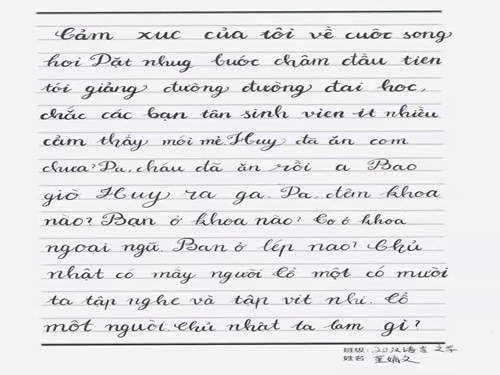 Cảm xuc của tôi về cuôc song
hoi Dặt nhug bước châm đầu tien
tói giảng đường đường đai hoc,
chắc các bạn tân sinh vien it nhiều
cảm thấy mói mẻ. Huy đã ăn com
chưa? Da, cháu đã ăn rồi a Bao
giờ Huy ra ga. Da, đêm khoa
nào? Bạn ở khoa nào? Co ở khoa
ngoại ngũ. Ban ở lép nao? Chủ
nhật có mấy người Cổ một có mười
ta tập nghe và tập vit nhi. Cổ
môt nguời. Chủ nhat ta lam gì?
班级: 20汉语言文学
姓名